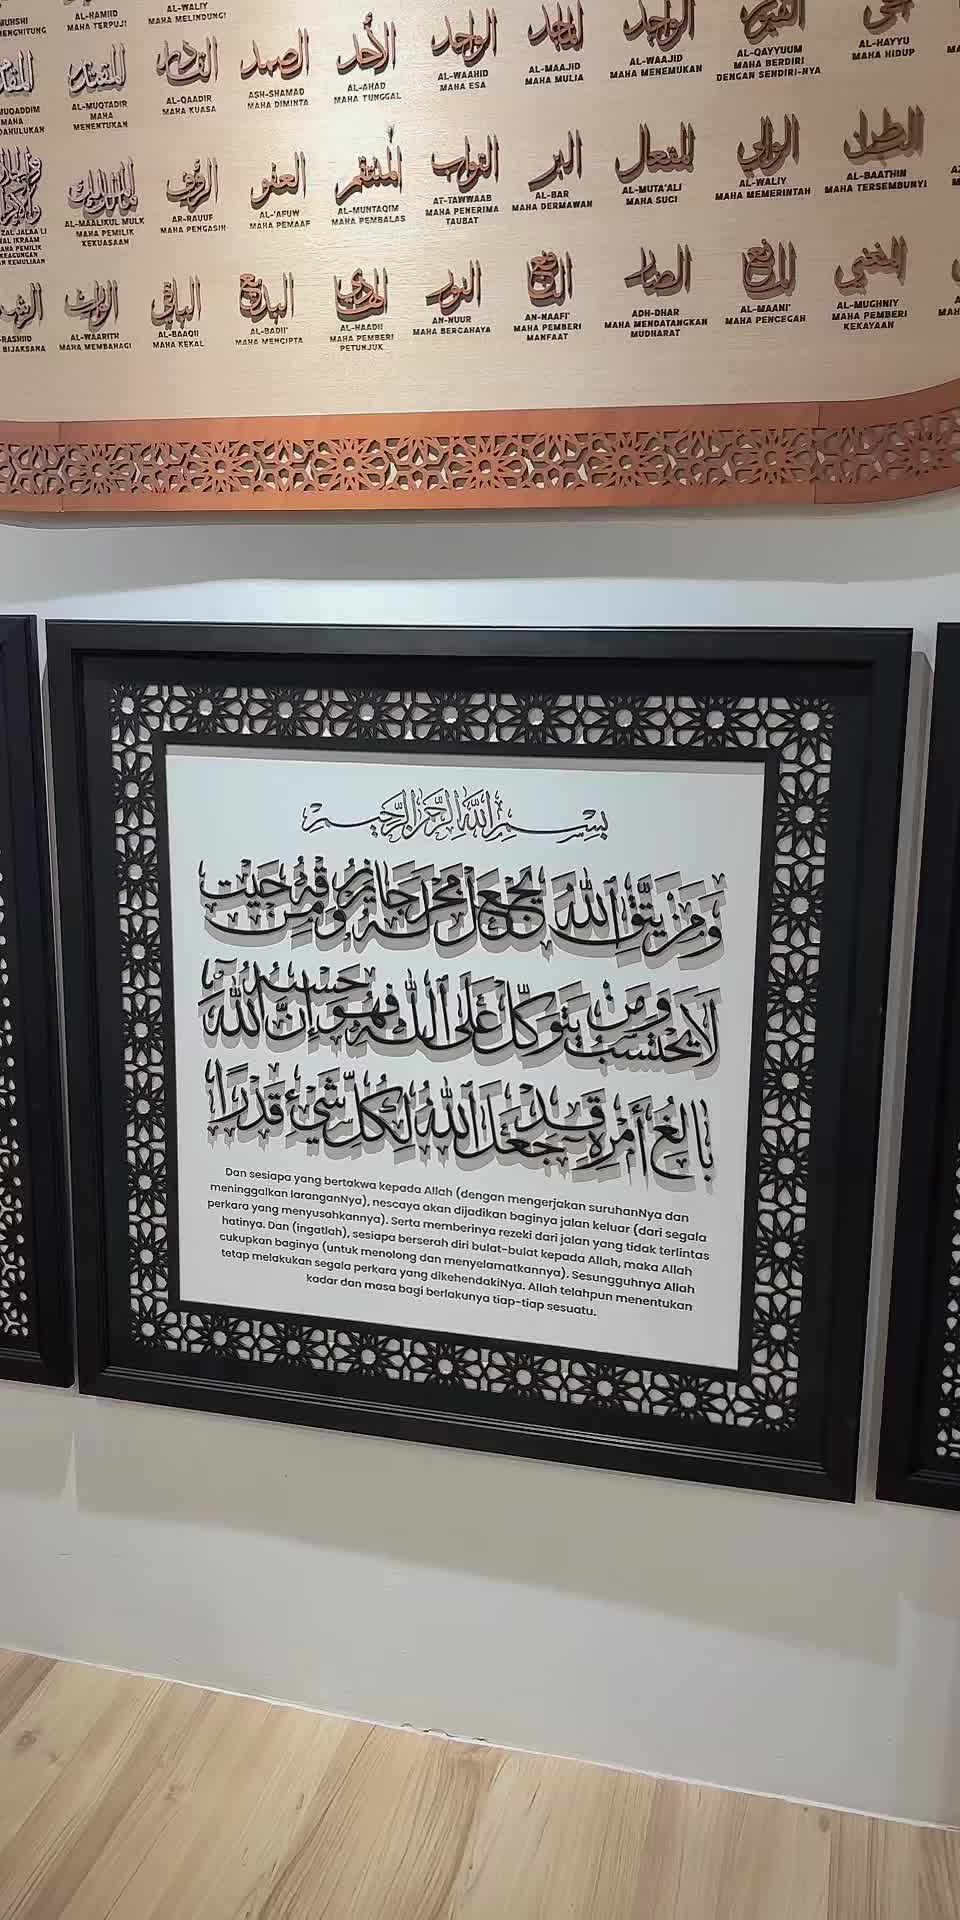 AL-HAMIID
AL-WALIY
MAHA TERPUJI
MAHA MELINDUNGI
المقتدر القادر الصمد الأحد الواحد الماجد الواجد القيوم الحي
AL-MUQTADIR
MAHA
MENENTUKAN
AL-QAADIR
MAHA KUASA
ASH-SHAMAD
MAHA DIMINTA
AL-AHAD
MAHA TUNGGAL
AL-WAAHID
MAHA ESA
AL-MAAJID
MAHA MULIA
AL-WAAJID
MAHA MENEMUKAN
AL-QAYYUUM
MAHA BERDIRI
DENGAN SENDIRI-NYA
AL-HAYYU
MAHA HIDUP
مالك الملك الرؤف العفو المنتقم التواب البر المتعال الوالي
AL-MAALIKUL MULK
MAHA PEMILIK
KEKUASAAN
AR-RAUUF
MAHA PENGASIH
AL-'AFUW
MAHA PEMAAF
AL-MUNTAQIM
MAHA PEMBALAS
AT-TAWWAAB
MAHA PENERIMA
TAUBAT
AL-BAR
MAHA DERMAWAN
AL-MUTA'ALI
MAHA SUCI
AL-WALIY
MAHA MEMERINTAH
AL-BAATHIN
MAHA TERSEMBUNYI
الوارث الباقي البديع الهادي النور النافع الضار المانع المغني
AL-WAARITH
MAHA MEMBAHAGI
AL-BAAQII
MAHA KEKAL
AL-BADII'
MAHA MENCIPTA
AL-HAADII
MAHA PEMBERI
PETUNJUK
AN-NUUR
MAHA BERCAHAYA
AN-NAAFI'
MAHA PEMBERI
MANFAAT
ADH-DHAR
MAHA MENDATANGKAN
MUDHARAT
AL-MAANI'
MAHA PENCEGAH
AL-MUGHNIY
MAHA PEMBERI
KEKAYAAN
بِسْمِ اللَّهِ الرَّحْمَنِ الرَّحِيمِ
وَمَنْ يَتَّقِ اللَّهَ يَجْعَلْ لَهُ مَخْرَجًا وَيَرْزُقْهُ مِنْ حَيْثُ
لَا يَحْتَسِبُ وَمَنْ يَتَوَكَّلْ عَلَى اللَّهِ فَهُوَ حَسْبُهُ إِنَّ اللَّهَ
بَالِغُ أَمْرِهِ قَدْ جَعَلَ اللَّهُ لِكُلِّ شَيْءٍ قَدْرًا
Dan sesiapa yang bertakwa kepada Allah (dengan mengerjakan suruhanNya dan
meninggalkan laranganNya), nescaya akan dijadikan baginya jalan keluar (dari segala
perkara yang menyusahkannya). Serta memberinya rezeki dari jalan yang tidak terlintas
hatinya. Dan (ingatlah), sesiapa berserah diri bulat-bulat kepada Allah, maka Allah
cukupkan baginya (untuk menolong dan menyelamatkannya). Sesungguhnya Allah
tetap melakukan segala perkara yang dikehendakiNya. Allah telahpun menentukan
kadar dan masa bagi berlakunya tiap-tiap sesuatu.